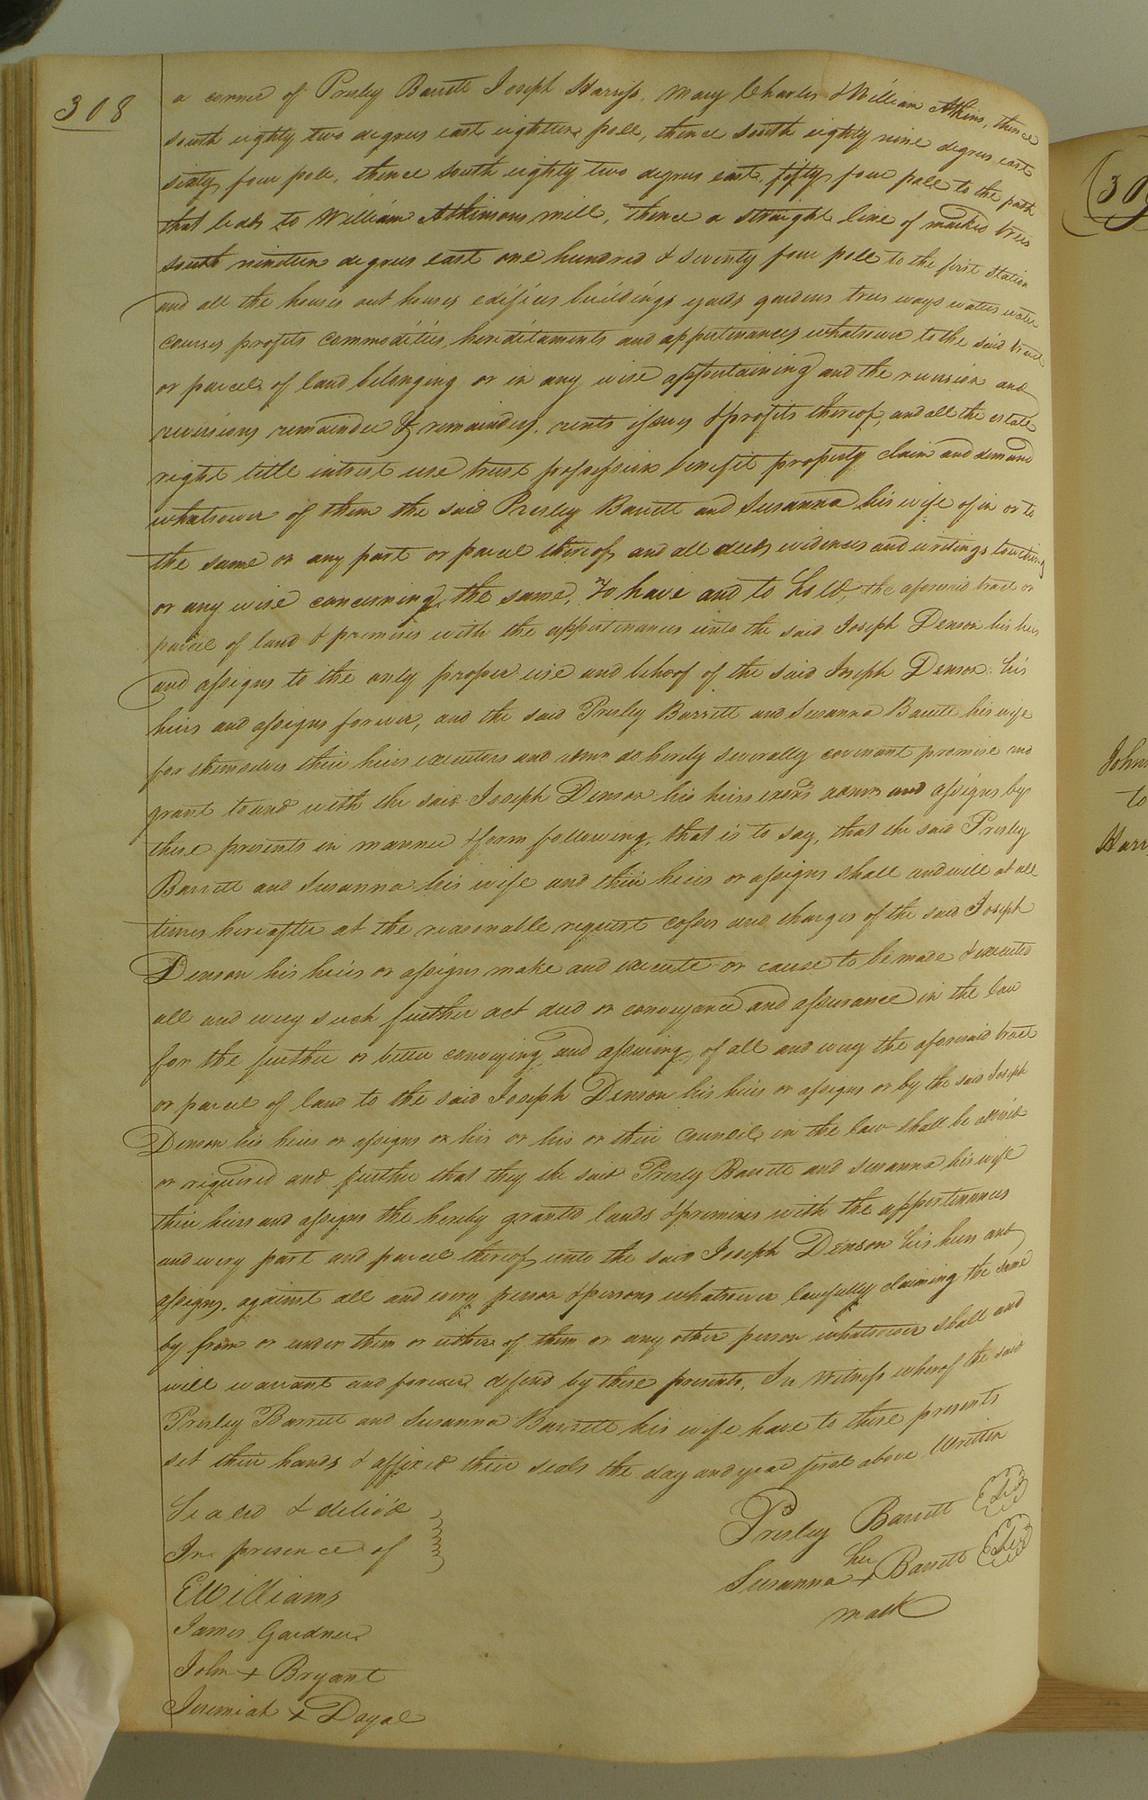 308
a corner of Presley Barrett Joseph Harriss, Mary Charles & William Atkins, thence
south eighty two degrees east eighteen pole, thence south eighty nine degrees east
sixty four pole, thence south eighty two degrees east, fifty four pole to the path
that leads to William Atkinsons mill, thence a straight line of marked trees
south nineteen degrees east one hundred & seventy four pole to the first station
and all the houses out houses edifices buildings yards gardens trees ways waters water
courses profits commodities, hereditaments and appurtenances whatsoever to the said tract
or parcel of land belonging or in any wise appurtaining and the revission and
revissions remainder & remainders, rents issues & profits thereof, and all the estate
right title intrest use trust possession benefit property claim and demand
whatsoever of them the said Presley Barrett and Susanna his wife of in or to
the same or any part or parcel thereof, and all deeds evidences and writings touching
or any wise concerning the same, To have and to hold, the aforesaid tract or
parcel of land & premises with the appurtinances unto the said Joseph Denson his heirs
and assigns to the only proper use and behoof of the said Joseph Denson his
heirs and assigns forever, and the said Presley Barrett and Susanna Barrett his wife
for themselves their heirs executors and admrs do hereby severally covenant promise and
grant to and with the said Joseph Denson his heirs exors admrs and assigns by
these presents in manner & form following, that is to say, that the said Presley
Barrett and Susanna his wife and their heirs or assigns shall and will at all
times hereafter at the reasonable request costs and charges of the said Joseph
Denson his heirs or assigns make and execute or cause to be made & executed
all and every such further act deed or conveyance and assurance in the law
for the further or better conveying and assuring, of all and every the aforesaid tract
or parcel of land to the said Joseph Denson his heirs or assigns or by the said Joseph
Denson his heirs or assigns or his or his or their Council, in the law shall be advised
or required and further that they the said Presley Barrett and Susanna his wife
their heirs and assigns the hereby granted lands & premises with the appurtinances
and every part and parcel thereof unto the said Joseph Denson his heirs and
assigns, against all and every person & persons whatsoever lawfully claiming the same
by from or under them or either of them or any other person whatsoever shall and
will warrant and forever defend by these presents, In Witness whereof the said
Presley Barrett and Susanna Barrett his wife have to these presents
set their hands & affixed their seals the day and year first above Written
Sealed & deliv'd
In presence of
EWilliams
James Gardner
John + Bryant
Jeremiah + Dayal
Presley Barrett
her
Susanna + Barrett
mark
(309
John
to
Harr